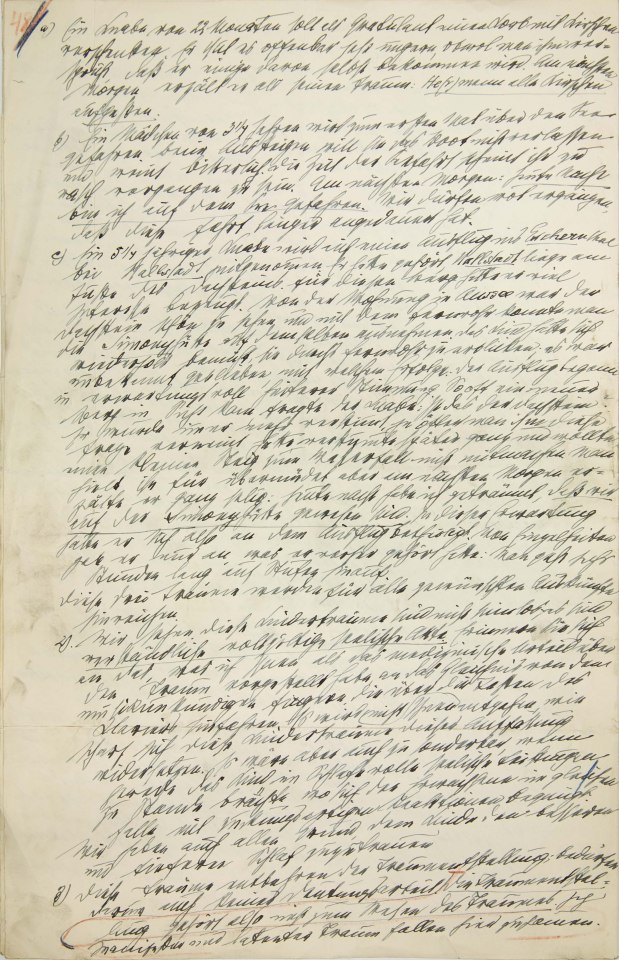 a) Ein Knabe von 22 Monaten soll als Gratulant einen Korb mit Kirschen
verschenken. Er thut es offenbar sehr ungern, obwol man ihm ver-
spricht, daß er einige davon selbst bekommen wird. Am nächsten
Morgen erzält er als seinen Traum: He(r)mann alle Kirschen
aufgessen.
b) Ein Mädchen von 3¼ Jahren wird zum ersten Mal über den See
gefahren. Beim Aussteigen will sie das Boot nicht verlassen
und weint bitterlich. Die Zeit der Seefahrt scheint ihr zu
rasch vergangen zu sein. Am nächsten Morgen: Heute Nacht
bin ich auf dem See gefahren. Wir dürfen wol ergänzen,
daß diese Fahrt länger angedauert hat.
c) Ein 5¼ jähriger Knabe wird auf einen Ausflug ins Escherntal
bei Hallstatt mitgenommen. Er hatte gehört, Hallstatt liege am
Fuße des Dachsteins. Für diesen Berg hatte er viel
Interesse bezeugt. Von der Wohnung in Aussee war der
Dachstein schön zu sehen und mit dem Fernrohr konnte man
die Simonyhütte auf demselben ausnehmen. Das Kind hatte sich
wiederholt bemüht, sie durchs Fernrohr zu erblicken; es war
unbekannt geblieben mit welchem Erfolge. Der Ausflug begann
in erwartungsvoll heiterer Stimmung. So oft ein neuer
Berg in Sicht kam, fragte der Knabe: Ist das der Dachstein?
Er wurde immer mehr verstimmt, je öfter man ihm diese
Frage verneint hatte, verstummte später ganz und wollte
einen kleinen Steig zum Wasserfall nicht mitmachen. Man
hielt ihn für übermüdet, aber am nächsten Morgen er-
zälte er ganz selig: Heute nacht habe ich geträumt, daß wir
auf der Simonyhütte gewesen sind. In dieser Erwartung
hatte er sich also an dem Ausflug beteiligt. Von Einzelheiten
gab er nur an, was er vorher gehört hatte: Man geht sechs
Stunden lang auf Stufen hinauf.
Diese drei Träume werden für alle gewünschten Auskünfte
hinreichen.
2) Wir sehen, diese Kinderträume sind nicht sinnlos; es sind
verständliche, vollgültige seelische Akte. Erinnern Sie sich
an das, was ich Ihnen als das medizinische Urteil über
den Traum vorgestellt habe, an das Gleichnis von den
musikunkundigen Fingern, die über die Tasten des
Klaviers hinfahren. Es wird Ihnen nicht entgehen, wie
scharf sich diese Kinderträume dieser Auffassung
widersetzen. Es wäre aber auch zu sonderbar, wenn
gerade das Kind im Schlafe volle seelische Leistungen
zu Stande brächte, wo sich der Erwachsene im gleichen
Falle mit zuckungsartigen Reaktionen begnügt.
Wir haben auch allen Grund, dem Kinde den besseren
und tieferen Schlaf zuzutrauen
3) Diese Träume entbehren der Traumentstellung; bedürfen
darum auch keiner Deutungsarbeit. Die Traumentstel-
lung gehört also nicht zum Wesen des Traumes.
Manifester und latenter Traum fallen hier zusammen.